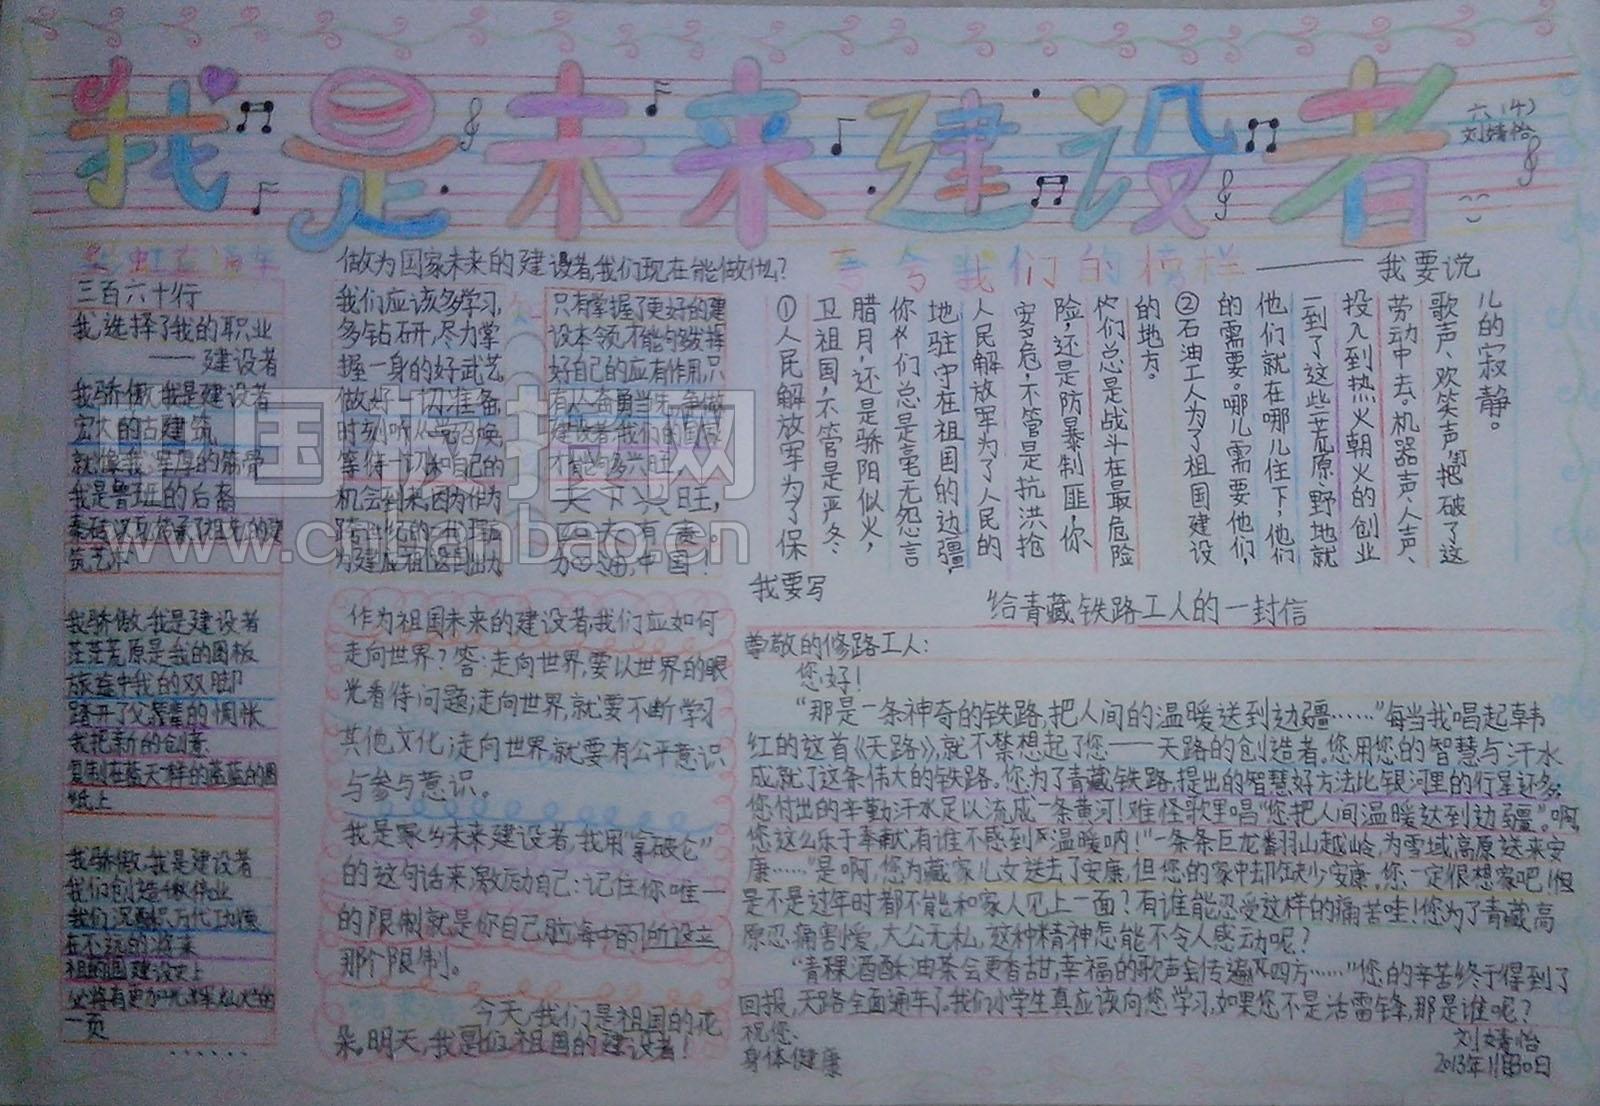 我是未来建设者
六(4)
刘婧怡
三百六十行
我选择了我的职业
——建设者
我骄傲,我是建设者
宏大的古建筑
就像我浑厚的筋骨
我是鲁班的后裔
筑艺术
我骄傲,我是建设者
茫茫荒原是我的图板
旅途中我的双脚
踏开了父辈的惆怅
我把新的创意
复制在蓝天一样的蓝蓝的图
纸上
我骄傲,我是建设者
我们创造
在不远的将来
祖国建设史上
必将有更加光辉灿烂的
一页
……
做为国家未来的建设者,我们现在能做什么?
我们应该多学习,
多钻研,尽力掌
握一身的好武艺
做好一切准备,
时刻听从党召唤,
等待一切和自己的
机会到来,因为作为
跨世纪的一代理应
为建庇祖国出为
只有掌握了更好的建
设本领,才能够发挥
好自己的应有作用,只
有人人奋勇当先,争做
建设者,我们的国家
才能够兴旺,
天下兴旺,
匹夫有责。
加油,中国!
作为祖国未来的建设者,我们应如何
走向世界?答:走向世界,要以世界的眼
光看待问题;走向世界,就要不断学习
其他文化;走向世界,就要有公平意识
与参与意识。
我是家乡未来建设者,我用"拿破仑"
的这句话来激励自己:记住你唯一
的限制就是你自己脑海中的所设立
那个限制。
今天,我们是祖国的花
朵。明天,我是祖国的建设者!
夸夸我们的榜样——我要说
①人民解放军为了保
卫祖国,不管是严冬
腊月,还是骄阳似火,
你们总是毫无怨言
地驻守在祖国的边疆,
人民解放军为了人民的
安危,不管是抗洪抢
险,还是防暴制匪,你
们总是战斗在最危险
的地方。
②石油工人为了祖国建设
的需要。哪儿需要他们,
他们就在哪儿住下,他们
一到了这些荒原野地就
投入到热火朝天的创业
劳动中去。机器声、人声、
歌声、欢笑声,把破了这
儿的寂静。
我要写
给青藏铁路工人的一封信
尊敬的修路工人:
您好!
"那是一条神奇的铁路,把人间的温暖送到边疆……"每当我唱起韩
红的这首《天路》,就不禁想起了您——天路的创造者。您用您的智慧与汗水
成就了这条伟大的铁路。您为了青藏铁路,提出的智慧好方法比银河里的行星还多;
您付出的辛勤汗水足以流成一条黄河!难怪歌里唱"您把人间温暖送到边疆"。啊,
您这么乐于奉献,有谁不感到温暖呐!"一条条巨龙翻山越岭,为雪域高原送来安
康……"是啊,您为藏家儿女送去了安康,但您的家中却缺少安康。您一定很想家吧!但
是不是过年时都不能和家人见上一面?有谁能忍受这样的痛苦哇!您为了青藏高
原忍痛割爱,大公无私,这种精神怎能不令人感动呢?
"青稞酒酥油茶会更香甜,幸福的歌声会传遍四方……"您的辛苦终于得到了
回报,天路全面通车了。我们小学生真应该向您学习,如果您不是活雷锋,那是谁呢?
祝您:
身体健康
刘婧怡
2013年11月30日
中国板报网
www.cnbanbao.cn